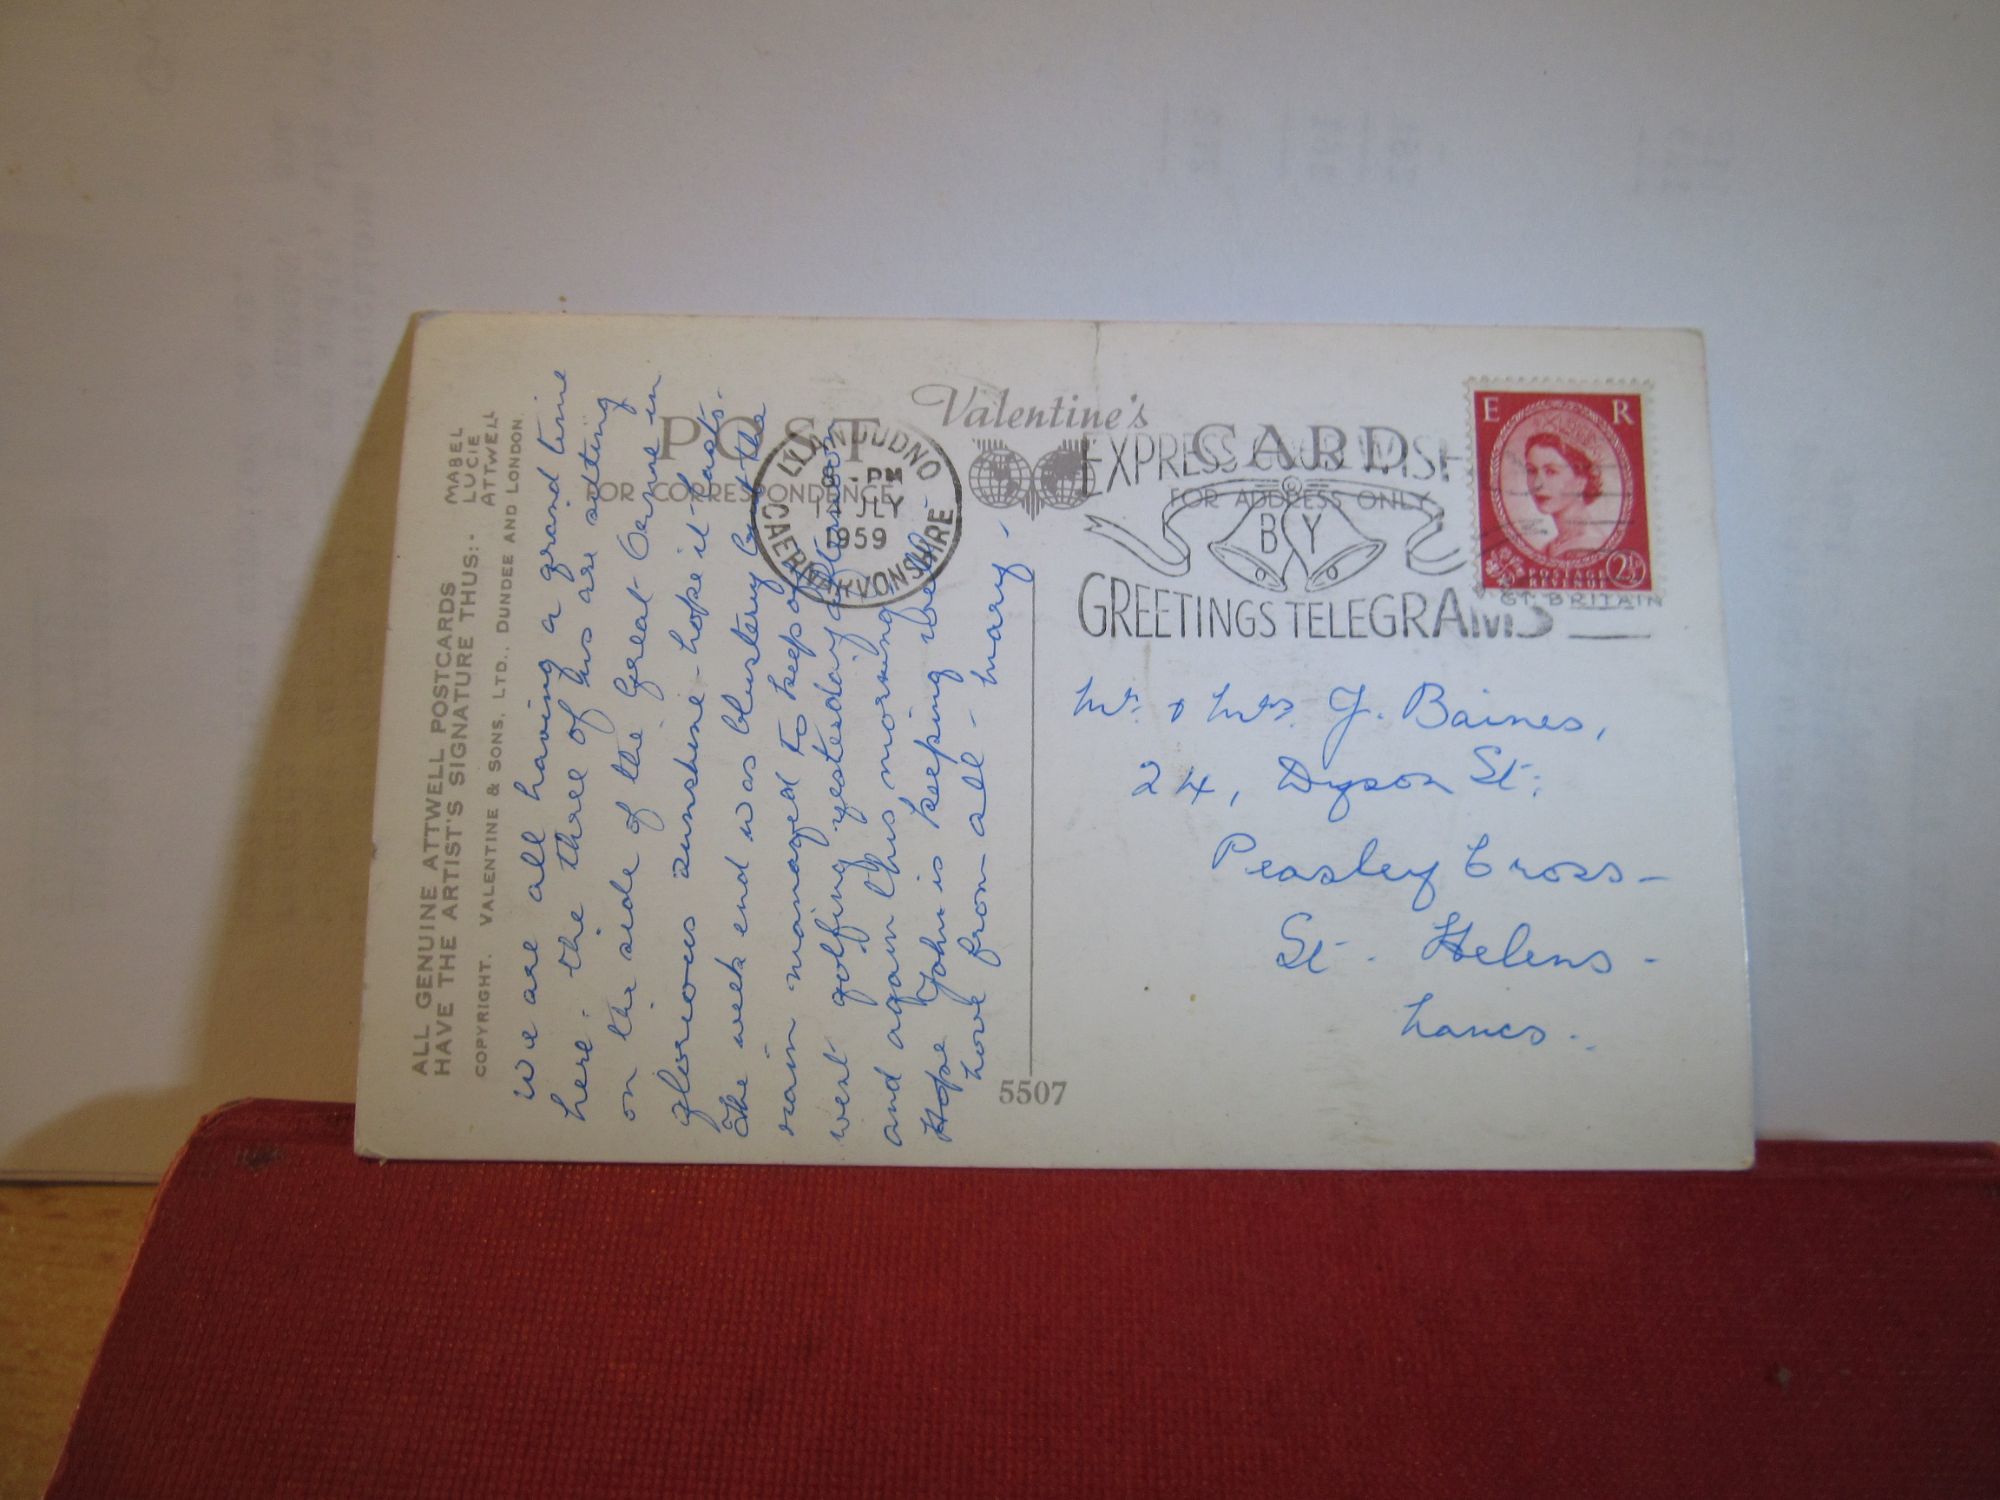 ALL GENUINE ATTWELL POSTCARDS
HAVE THE ARTIST'S SIGNATURE THUS:-
MABEL
LUCIE
ATTWELL
COPYRIGHT. VALENTINE & SONS, LTD., DUNDEE AND LONDON.
We are all having a grand time
here - the three of us are sitting
on the side of the Great Orme in
glorious sunshine - hope it lasts.
The week end was blustery but the
rain managed to keep off
went golfing yesterday afternoon
and again this morning
Hope John is keeping well
Love from all - Mary -
POST
Valentine's
CARD
FOR CORRESPONDENCE
FOR ADDRESS ONLY
LLANDUDNO
PM
JLY
1959
CAERNARVONSHIRE
EXPRESS YOUR WISH
BY
GREETINGS TELEGRAMS
E R
POSTAGE
REVENUE
2½
GT. BRITAIN
Mr. & Mrs. J. Baines,
24, Dyson St.
Peasley Cross -
St. Helens -
Lancs.
5507